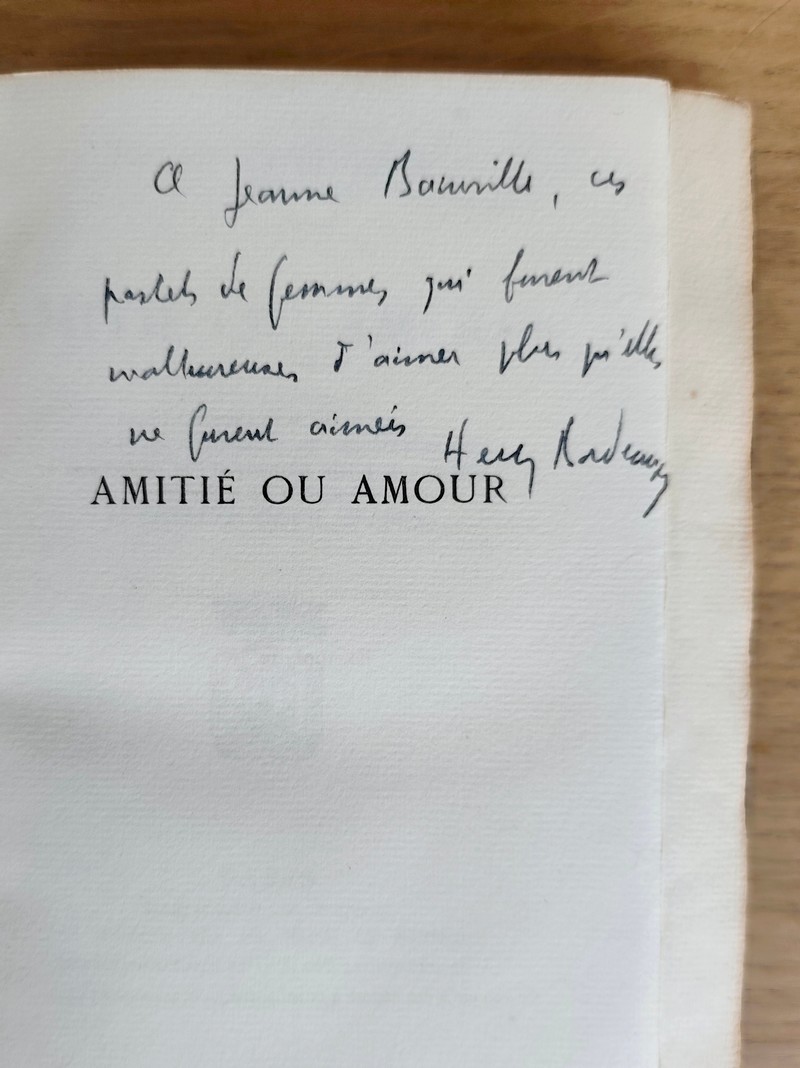 A Jeanne , ces
pastels de femmes qui furent
malheureuses d'aimer plus qu'elles
ne furent aimées Henry Bordeaux
AMITIÉ OU AMOUR